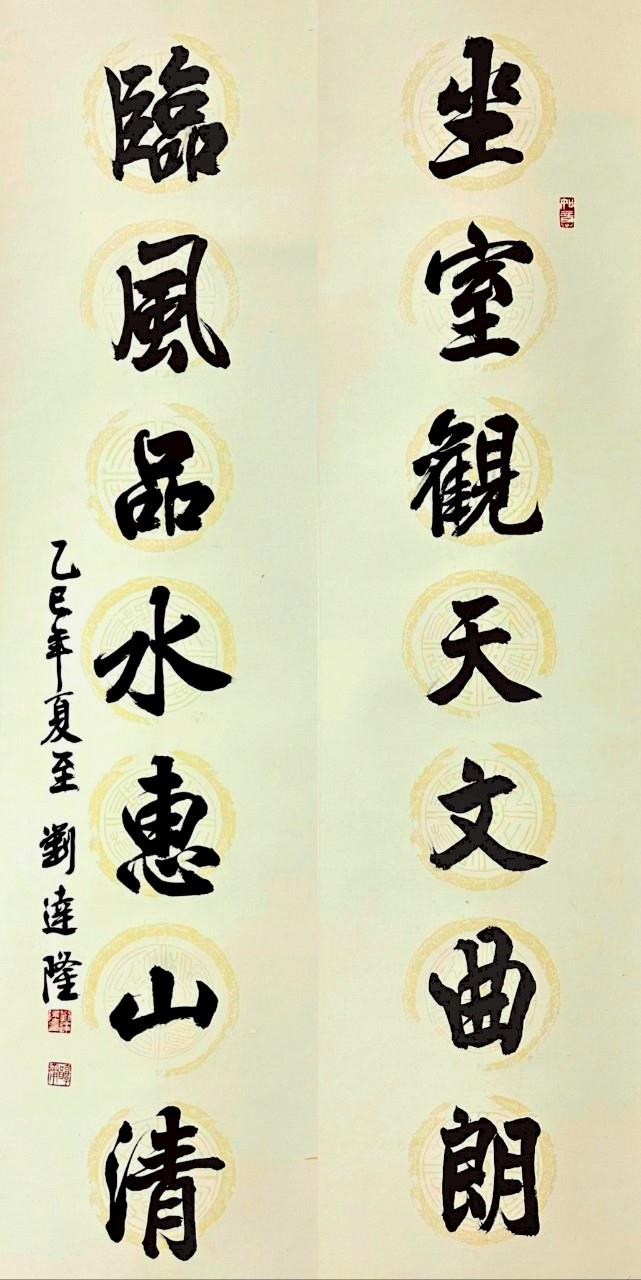 坐室觀天文曲朗
臨風品水惠山清
乙巳年夏至 劉達隆